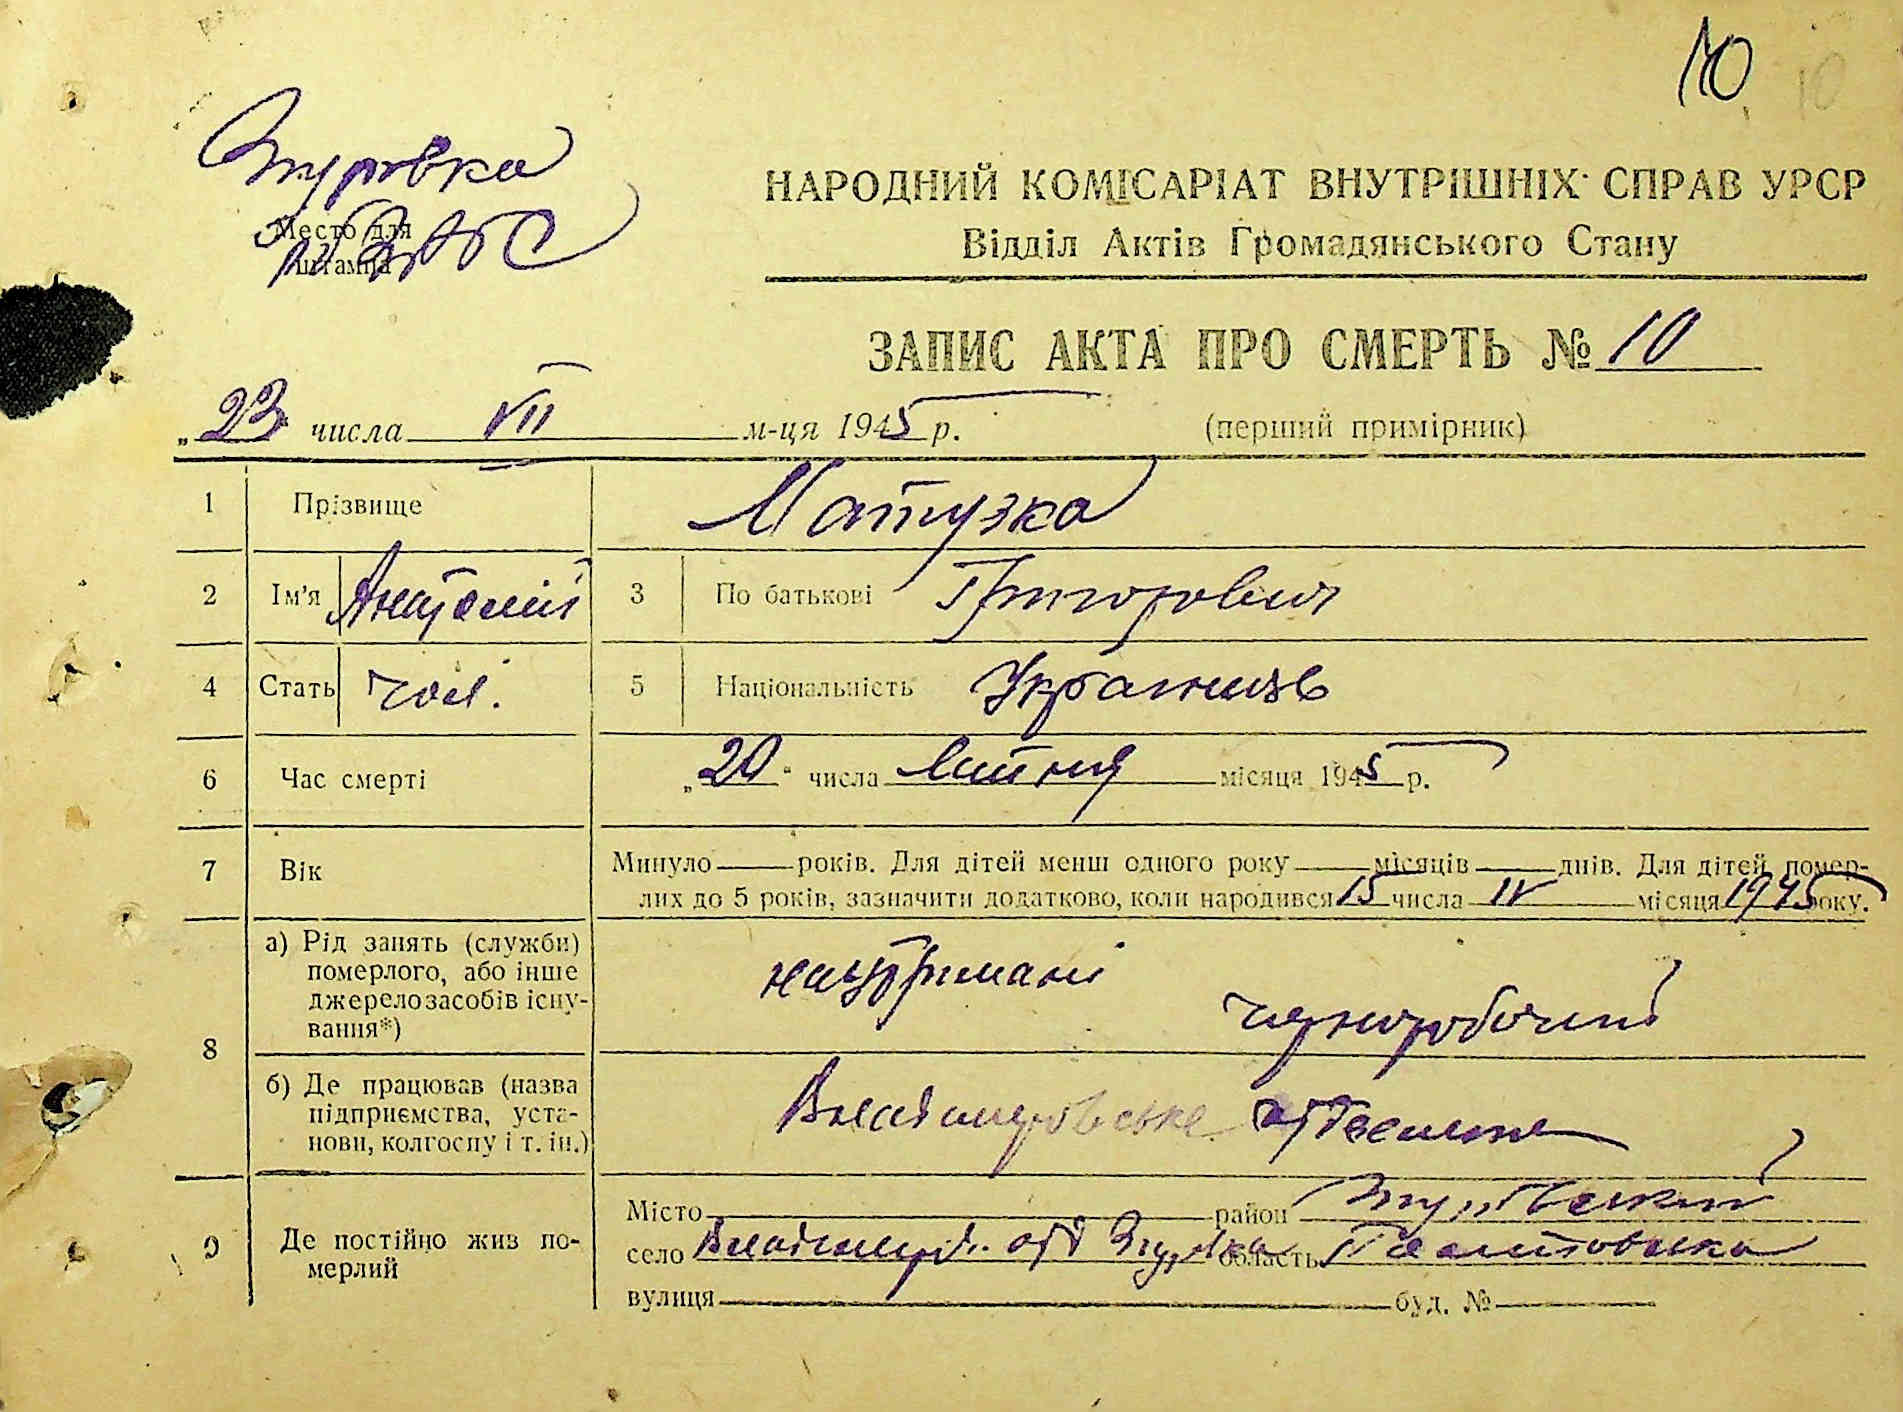 10 10
Згурівка
Место для
штампа
ЗАГС
НАРОДНИЙ КОМІСАРІАТ ВНУТРІШНІХ СПРАВ УРСР
Відділ Актів Громадянського Стану
ЗАПИС АКТА ПРО СМЕРТЬ № 10
„23 числа VII м-ця 1945 р. (перший примірник)
1 Прізвище Матузка
2 Ім'я Анатолій 3 По батькові Григорович
4 Стать чол. 5 Національність Українець
6 Час смерті „20" числа Липня місяця 1945 р.
7 Вік Минуло — років. Для дітей менш одного року — місяців — днів. Для дітей, помер-
лих до 5 років, зазначити додатково, коли народився 15 числа IV місяця 1945 року.
8 а) Рід занять (служби)
померлого, або інше
джерело засобів існу-
вання*)
на утримані
чорноробочий
б) Де працював (назва
підприємства, уста-
нови, колгоспу і т. ін.)
Владимировське
9 Де постійно жив по-
мерлий
Місто — район Згурівський
село Владимир. від Згурівка область Полтовська
вулиця — буд. № —